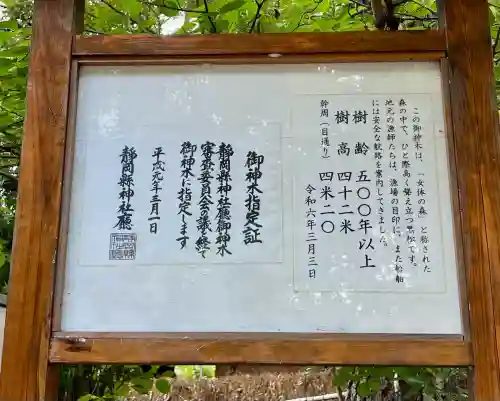 この御神木は、「女体の森」と称された
森の中で、ひと際高く聳え立つ黒松です。
地元の漁師たちは、漁場の目印に、また船舶
には安全な航路を案内してきました。
樹齢 五〇〇年以上
樹高 四十二米
幹周(目通り) 四米二〇
令和六年三月三日
御神木指定証
静岡県神社庁御神木
審査委員会の議を経て
御神木に指定します
平成元年三月一日
静岡縣神社廳